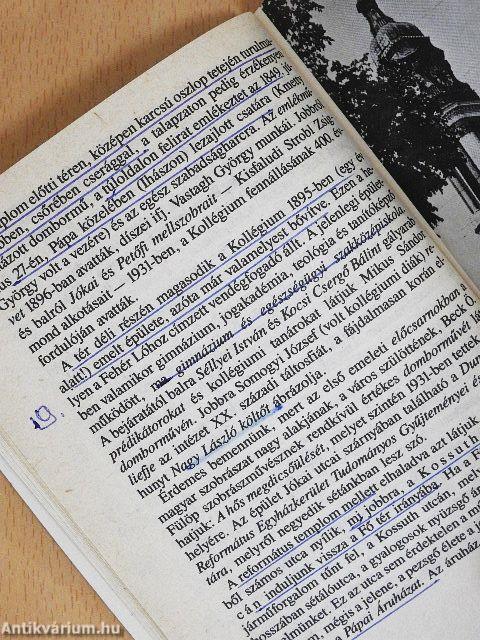 plom előtti téren, középen karcsú oszlop tetején turulma-
csőrében cserággal, a talapzaton pedig érzékenyen
ázott dombormű a túloldalon felirat emlékeztet az 1849. jú-
us 27-én, Pápa közelében (Ihászon) lezajlott csatára (Kmetty
György volt a vezére) és az egész szabadságharcra. Az emlékmű-
vet 1896-ban avatták, díszei ifj. Vastagh György munkái. Jobbról
és balról Jókai és Petőfi mellszobrait — Kisfaludi Strobl Zsig-
mond alkotásait — 1931-ben, a Kollégium fennállásának 400. év-
fordulóján avatták.
A tér déli részén magasodik a Kollégium 1895-ben (egy év
alatt) emelt épülete, azóta már valamelyest bővítve. Ezen a he-
lyen a Fehér Lóhoz címzett vendégfogadó állt. A jelenlegi épület-
ben valamikor gimnázium, jogakadémia, teológia és tanítóképző
működött, ma gimnázium és egészségügyi szakközépiskola.
A bejáratától balra Séllyei István és Kocsi Csergő Bálint gályarab
prédikátorokat és kollégiumi tanárokat látjuk Mikus Sándor
domborművén. Jobbra Somogyi József (volt kollégiumi diák) re-
liefje az intézet XX. századi táltosfiát, a fájdalmasan korán el-
hunyt Nagy László költőt ábrázolja.
Érdemes bemennünk, mert az első emeleti előcsarnokban a
magyar szobrászat nagy alakjának, a város szülöttének, Beck Ö.
Fülöp szobrászművésznek rendkívül értékes domborművét lát-
hatjuk. A hős megdicsőülését, melyet szintén 1931-ben tettek
helyére. Az épület Jókai utcai szárnyában található a Dun
Református Egyházkerület Tudományos Gyűjteményei és
tára, melyről negyedik sétánkban lesz szó.
A református templom mellett elhaladva azt látjuk
ből számos utca nyílik, mi jobbra, a Kossuth
cán induljunk vissza a Fő tér irányába. Ha a F
járműforgalom tűnt fel, a Kossuth utcán, mely
hosszában sétálóutca, a gyalogosok nyüzsgő ár
münket. Ez az utca sem érdektelen a m
mégis a jelene, a pezsgő élete a l
Pápai Áruházat. Az áruház
19.
Antikvárium.hu